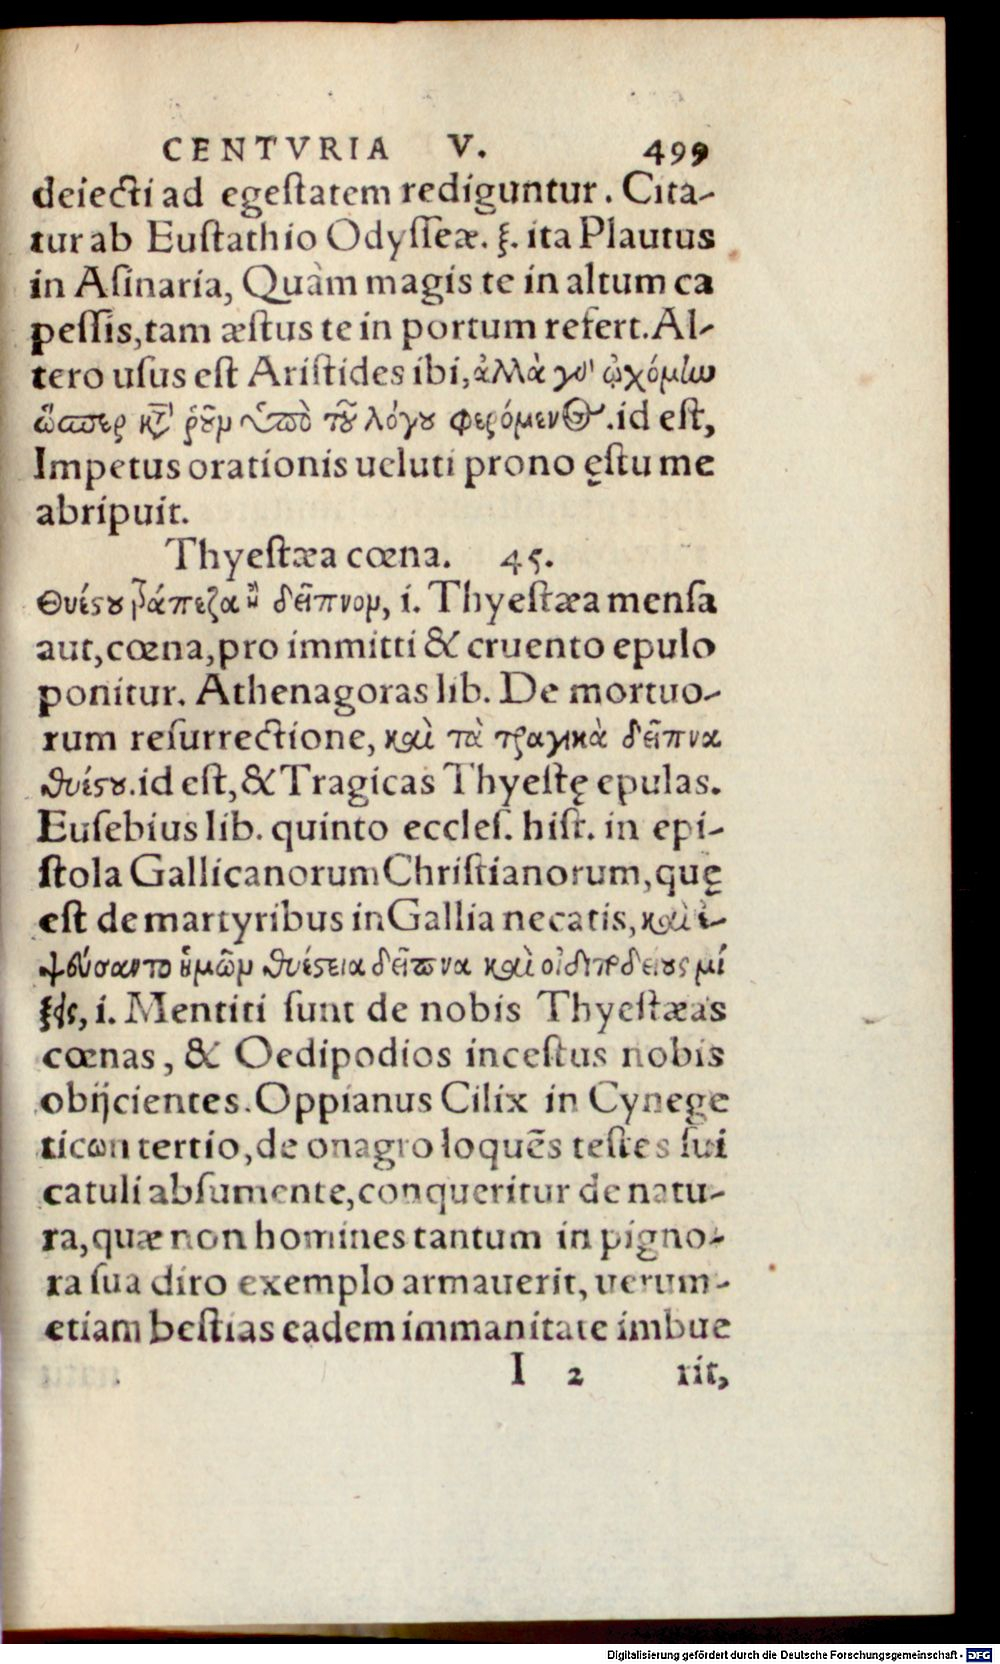 CENTVRIA V. 499
deiecti ad egestatem rediguntur. Cita-
tur ab Eustathio Odysseæ. ξ. ita Plautus
in Asinaria, Quàm magis te in altum ca
pessis, tam æstus te in portum refert. Al-
tero usus est Aristides ibi, ἀλλὰ γὰρ ᾠχόμην
ὥσπερ κτ' ῥοῦν ὑπὸ τοῦ λόγου φερόμενος. id est,
Impetus orationis ueluti prono ęstu me
abripuit.
Thyestæa cœna. 45.
Θυέστου τράπεζα ἢ δεῖπνον, i. Thyestæa mensa
aut, cœna, pro immitti & cruento epulo
ponitur. Athenagoras lib. De mortuo-
rum resurrectione, καὶ τὰ τραγικὰ δεῖπνα
θυέστου. id est, & Tragicas Thyestę epulas.
Eusebius lib. quinto eccles. hist. in epi-
stola Gallicanorum Christianorum, quę
est de martyribus in Gallia necatis, καὶ ἐ-
ψεύσαντο ἡμῶν θυέστεια δεῖπνα καὶ οἰδιποδείους μί
ξεις, i. Mentiti sunt de nobis Thyestæas
cœnas, & Oedipodios incestus nobis
obijcientes. Oppianus Cilix in Cynege
ticωn tertio, de onagro loquẽs testes sui
catuli absumente, conqueritur de natu-
ra, quæ non homines tantum in pigno-
ra sua diro exemplo armauerit, uerum-
etiam bestias eadem immanitate imbue
I 2 rit,
Digitalisierung gefördert durch die Deutsche Forschungsgemeinschaft - DFG